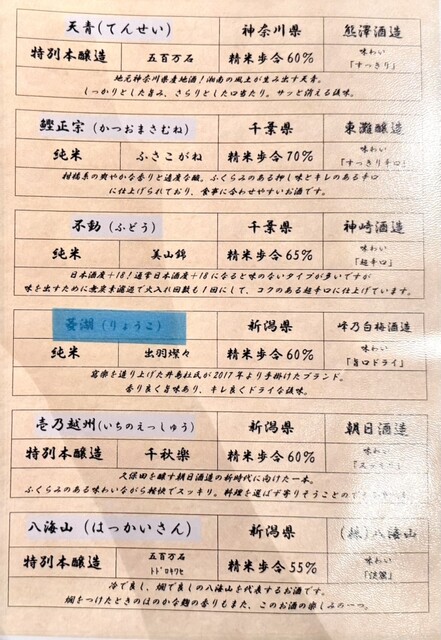 天青(てんせい) 神奈川県 熊澤酒造
特別本醸造 五百万石 精米歩合60% 味わい
「すっきり」
地元神奈川県産地酒!湘南の風土が生み出す天青。
しっかりとした旨み、さらりとした口当たり。サッと消える後味。
鰹正宗(かつおまさむね) 千葉県 東灘醸造
純米 ふさこがね 精米歩合70% 味わい
「すっきり辛口」
柑橘系の爽やかな香りと適度な酸。ふくらみのある押し味とキレのある辛口
に仕上げられており、食事に合わせやすいお酒です。
不動(ふどう) 千葉県 神崎酒造
純米 美山錦 精米歩合65% 味わい
「超辛口」
日本酒度+18!通常日本酒度+18になると味のないタイプが多いですが
味を出すために無炭素濾過で火入れ回数も1回にして、コクのある超辛口に仕上げています。
菱湖(りょうこ) 新潟県 峰乃白梅酒造
純米 出羽燦々 精米歩合60% 味わい
「旨口ドライ」
寫樂を造り上げた井島杜氏が2017年より手掛けたブランド。
香り良く旨味あり、キレ良くドライな後味。
壱乃越州(いちのえっしゅう) 新潟県 朝日酒造
特別本醸造 千秋楽 精米歩合60% 味わい
「スッキリ」
久保田を醸す朝日酒造の新時代に向けた一本。
ふくらみのある味わいながら軽快でスッキリ。料理を選ばず寄りそうことので
八海山(はっかいさん) 新潟県 (株)八海山
特別本醸造 五百万石
トドロキワセ 精米歩合55% 味わい
「淡麗」
冷で良し、燗で良しの八海山を代表するお酒です。
燗をつけたときのほのかな麹の香りもまた、このお酒の楽しみの一つ。